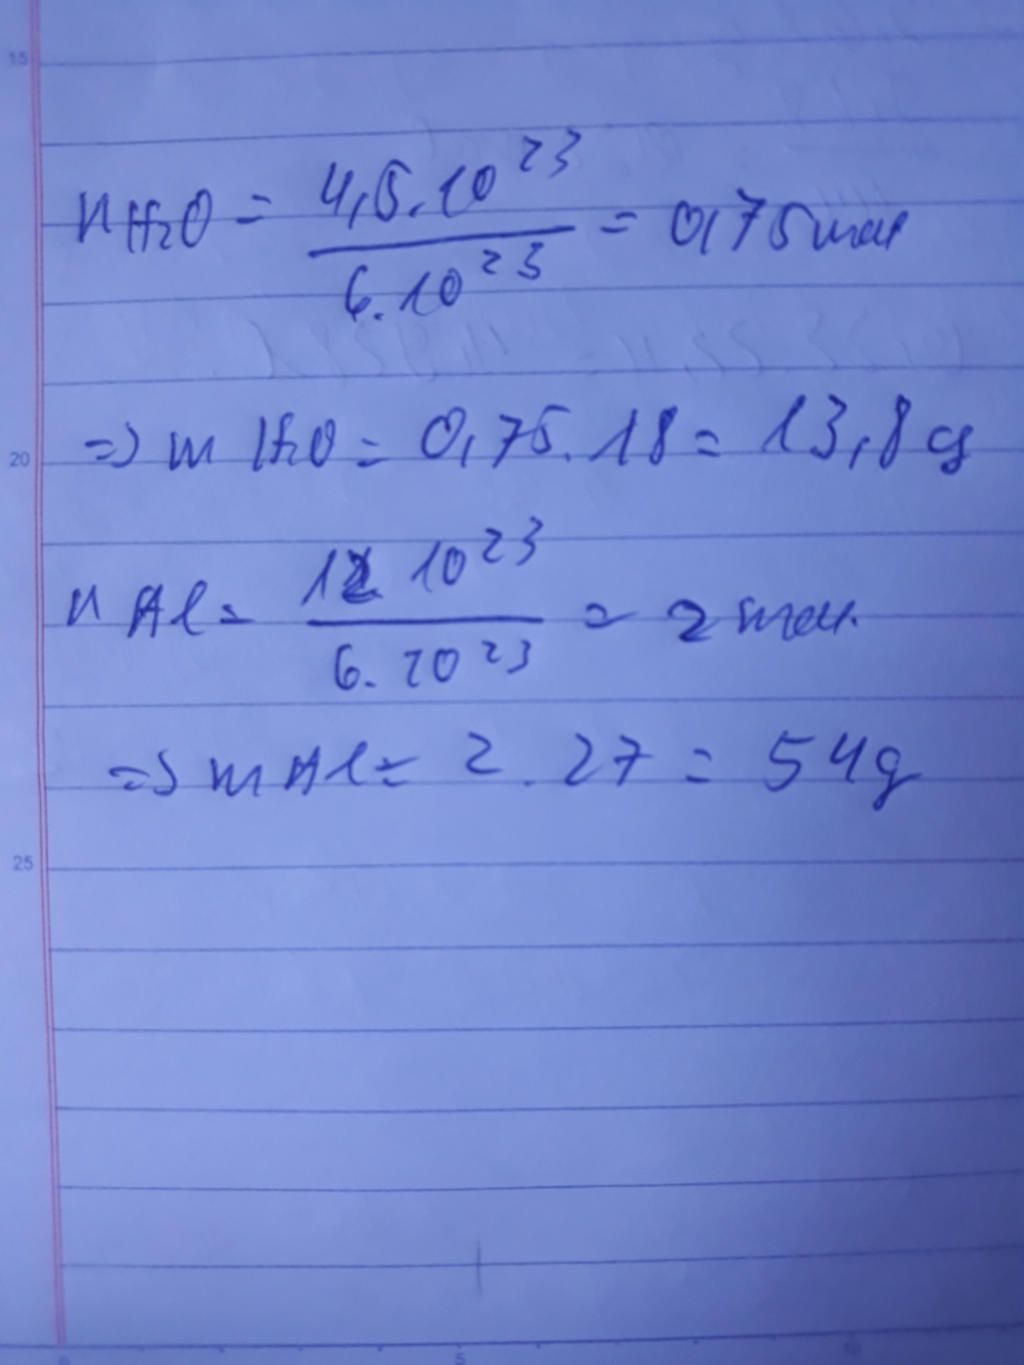 15
nH₂O = 4,5.10²³ / 6.10²³ = 0,75 mol
20
=> m H₂O = 0,75.18 = 13,8 g
n Al = 12 10²³ / 6.10²³ = 2 mol.
=> m Al = 2.27 = 54g
25
0 5 10